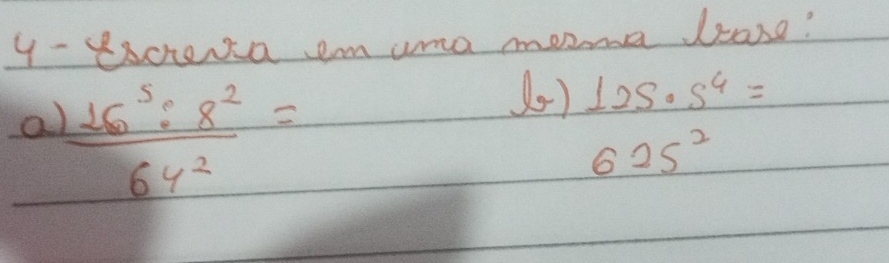 4 - Escreva em uma mesma base:
a) 16⁵ : 8² = b) 125 . 5⁴ =
64² 625²